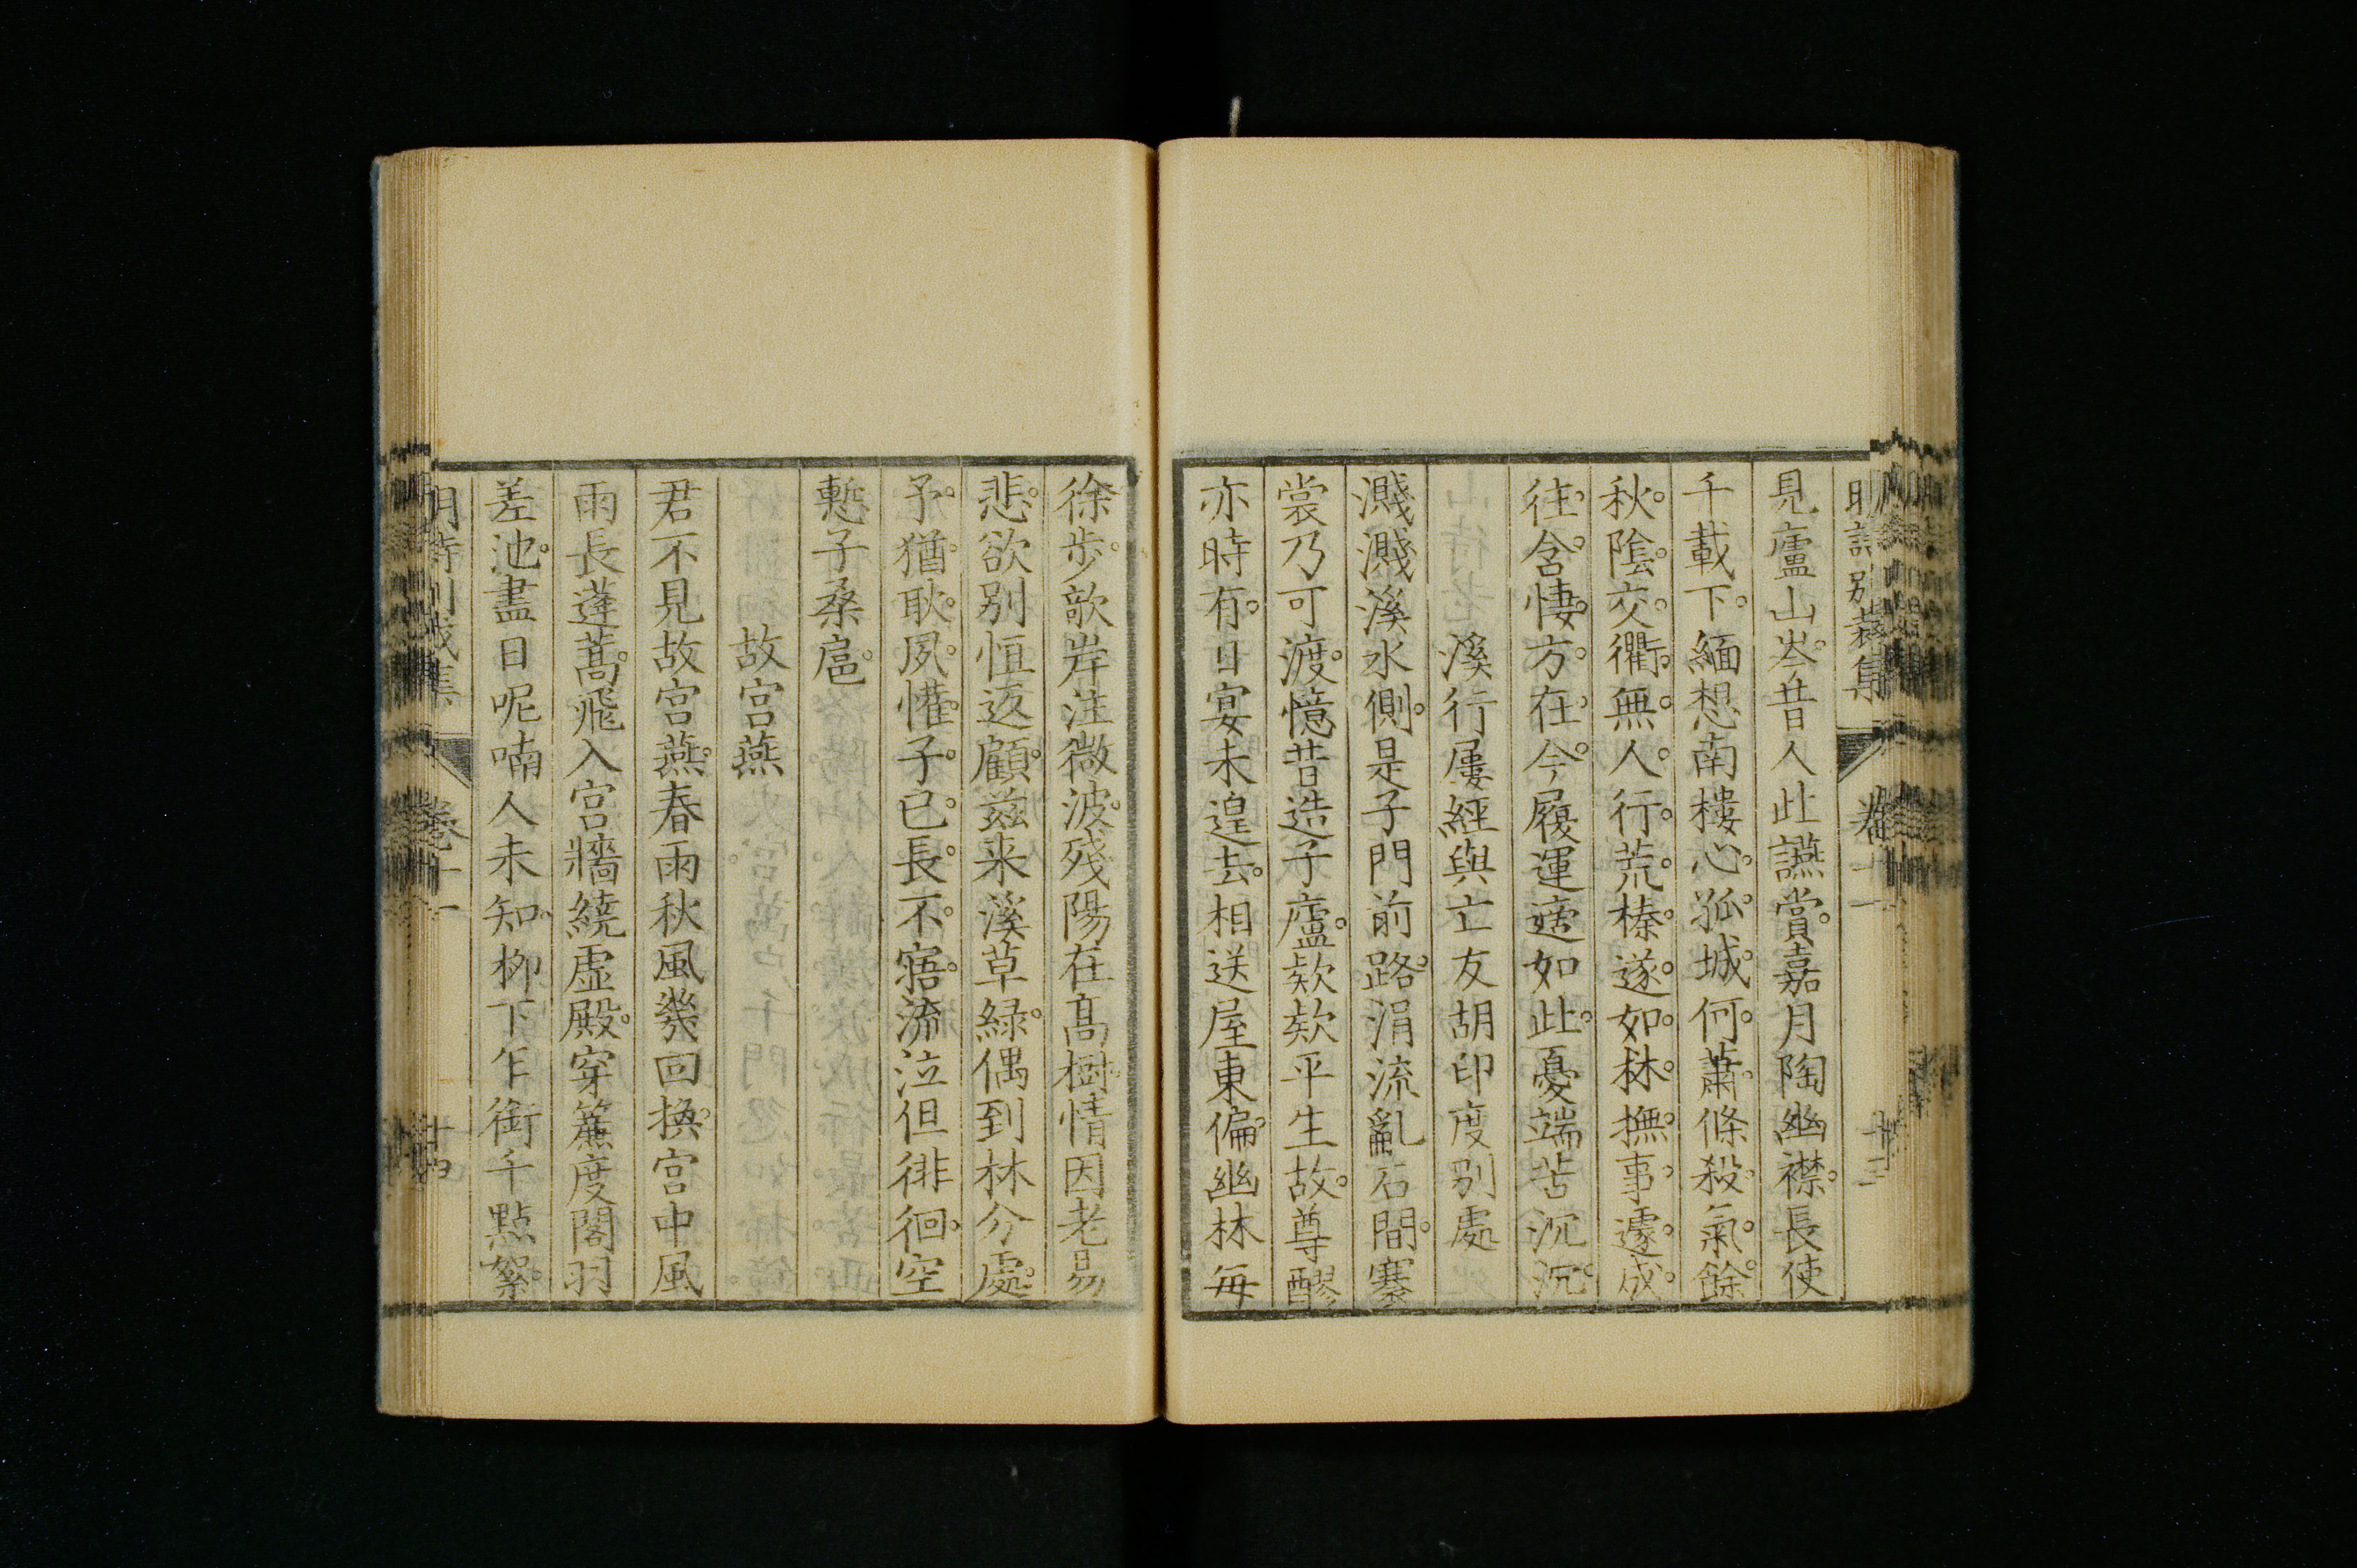 明詩別裁集 卷十一 十三
見廬山岑。昔人此讌賞。嘉月陶幽襟。長使
千載下。緬想南樓心。孤城何蕭條。殺氣餘
秋陰。交衢無人行。荒榛遂如林。撫事遽成
往。含悽方在今。履運適如此。憂端苦沉沉。
溪行屢經與立友胡印度別處
濺濺溪水側。是子門前路。涓流亂石間。褰
裳乃可渡。憶昔造子廬。欵欵平生故。尊醪
亦時有。日宴未遑去。相送屋東偏。幽林每
徐步。歌岸注微波。殘陽在高樹。情因老易
悲。欲別恒返顧。茲来溪草綠。偶到林分處。
予猶耿夙懽。子已長不寤。流泣但徘徊。空
慙子桑扈。
故宮燕
君不見故宮燕。春雨秋風幾回換。宮中風
雨長蓬蒿。飛入宮牆繞虛殿。穿簾度閣羽
差池。盡日呢喃人未知。柳下乍銜千點絮。
明詩別裁集 卷十一 十四